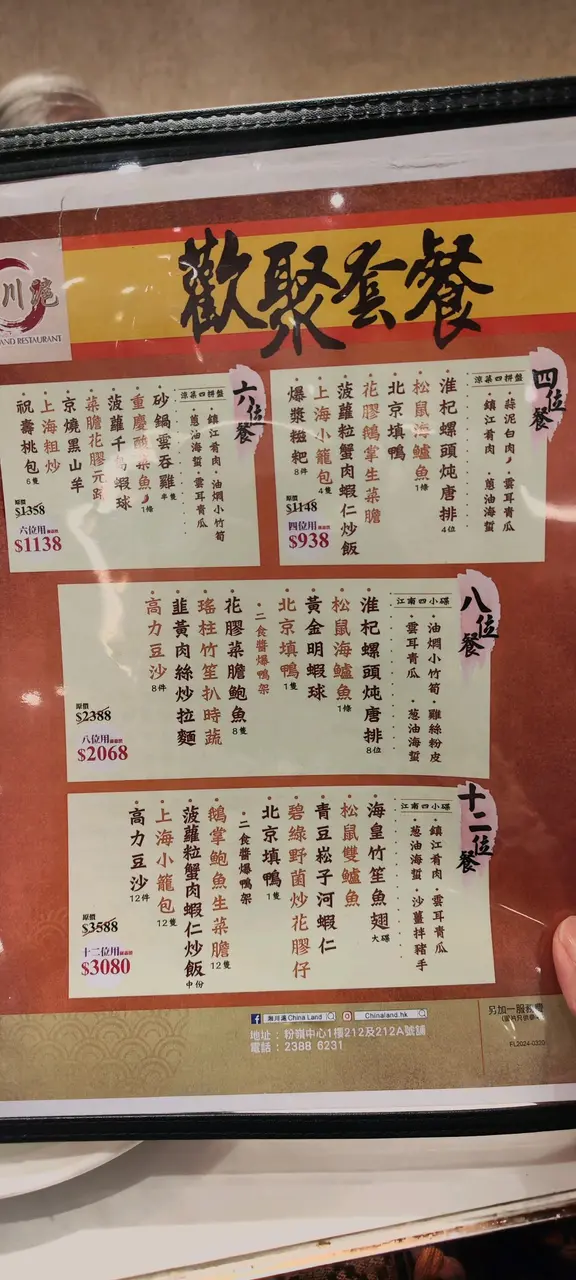 歡聚套餐
川滬
AND RESTAURANT
四位餐
涼菜四拼盤
蒜泥白肉 · 雲耳青瓜
鎮江肴肉 葱油海蜇
淮杞螺頭炖唐排 4位
松鼠海鱸魚 1條
北京填鴨
花膠鵝掌生菜膽
菠蘿粒蟹肉蝦仁炒飯
上海小籠包 4隻
爆漿糍粑 8件
原價
$1148
四位用
$938
六位餐
涼菜四拼盤
鎮江肴肉 · 油燜小竹筍
葱油海蜇 · 雲耳青瓜
砂鍋雲吞雞 半隻
重慶酸菜魚 1條
菠蘿千島蝦球
菜膽花膠元蹄
京燒黑山羊
上海粗炒
祝壽桃包 6隻
原價
$1358
六位用
$1138
八位餐
江南四小碟
油燜小竹筍 · 雞絲粉皮
雲耳青瓜 葱油海蜇
淮杞螺頭炖唐排 8位
松鼠海鱸魚 1條
黃金明蝦球
北京填鴨 1隻
二食醬爆鴨架
花膠菜膽鮑魚 8隻
瑤柱竹笙扒時蔬
韮黃肉絲炒拉麵
高力豆沙 8件
原價
$2388
八位用
$2068
十二位餐
江南四小碟
鎮江肴肉 · 雲耳青瓜
葱油海蜇 · 沙薑拌豬手
海皇竹笙魚翅 大碟
松鼠雙鱸魚
青豆崧子河蝦仁
碧綠野菌炒花膠仔
北京填鴨 1隻
二食醬爆鴨架
鵝掌鮑魚生菜膽 12隻
菠蘿粒蟹肉蝦仁炒飯 中份
上海小籠包 12隻
高力豆沙 12件
原價
$3588
十二位用
$3080
China Land
Chinaland.hk
地址：粉嶺中心1樓212及212A號舖
電話：2388 6231
另加一服務費
FL2024-0320